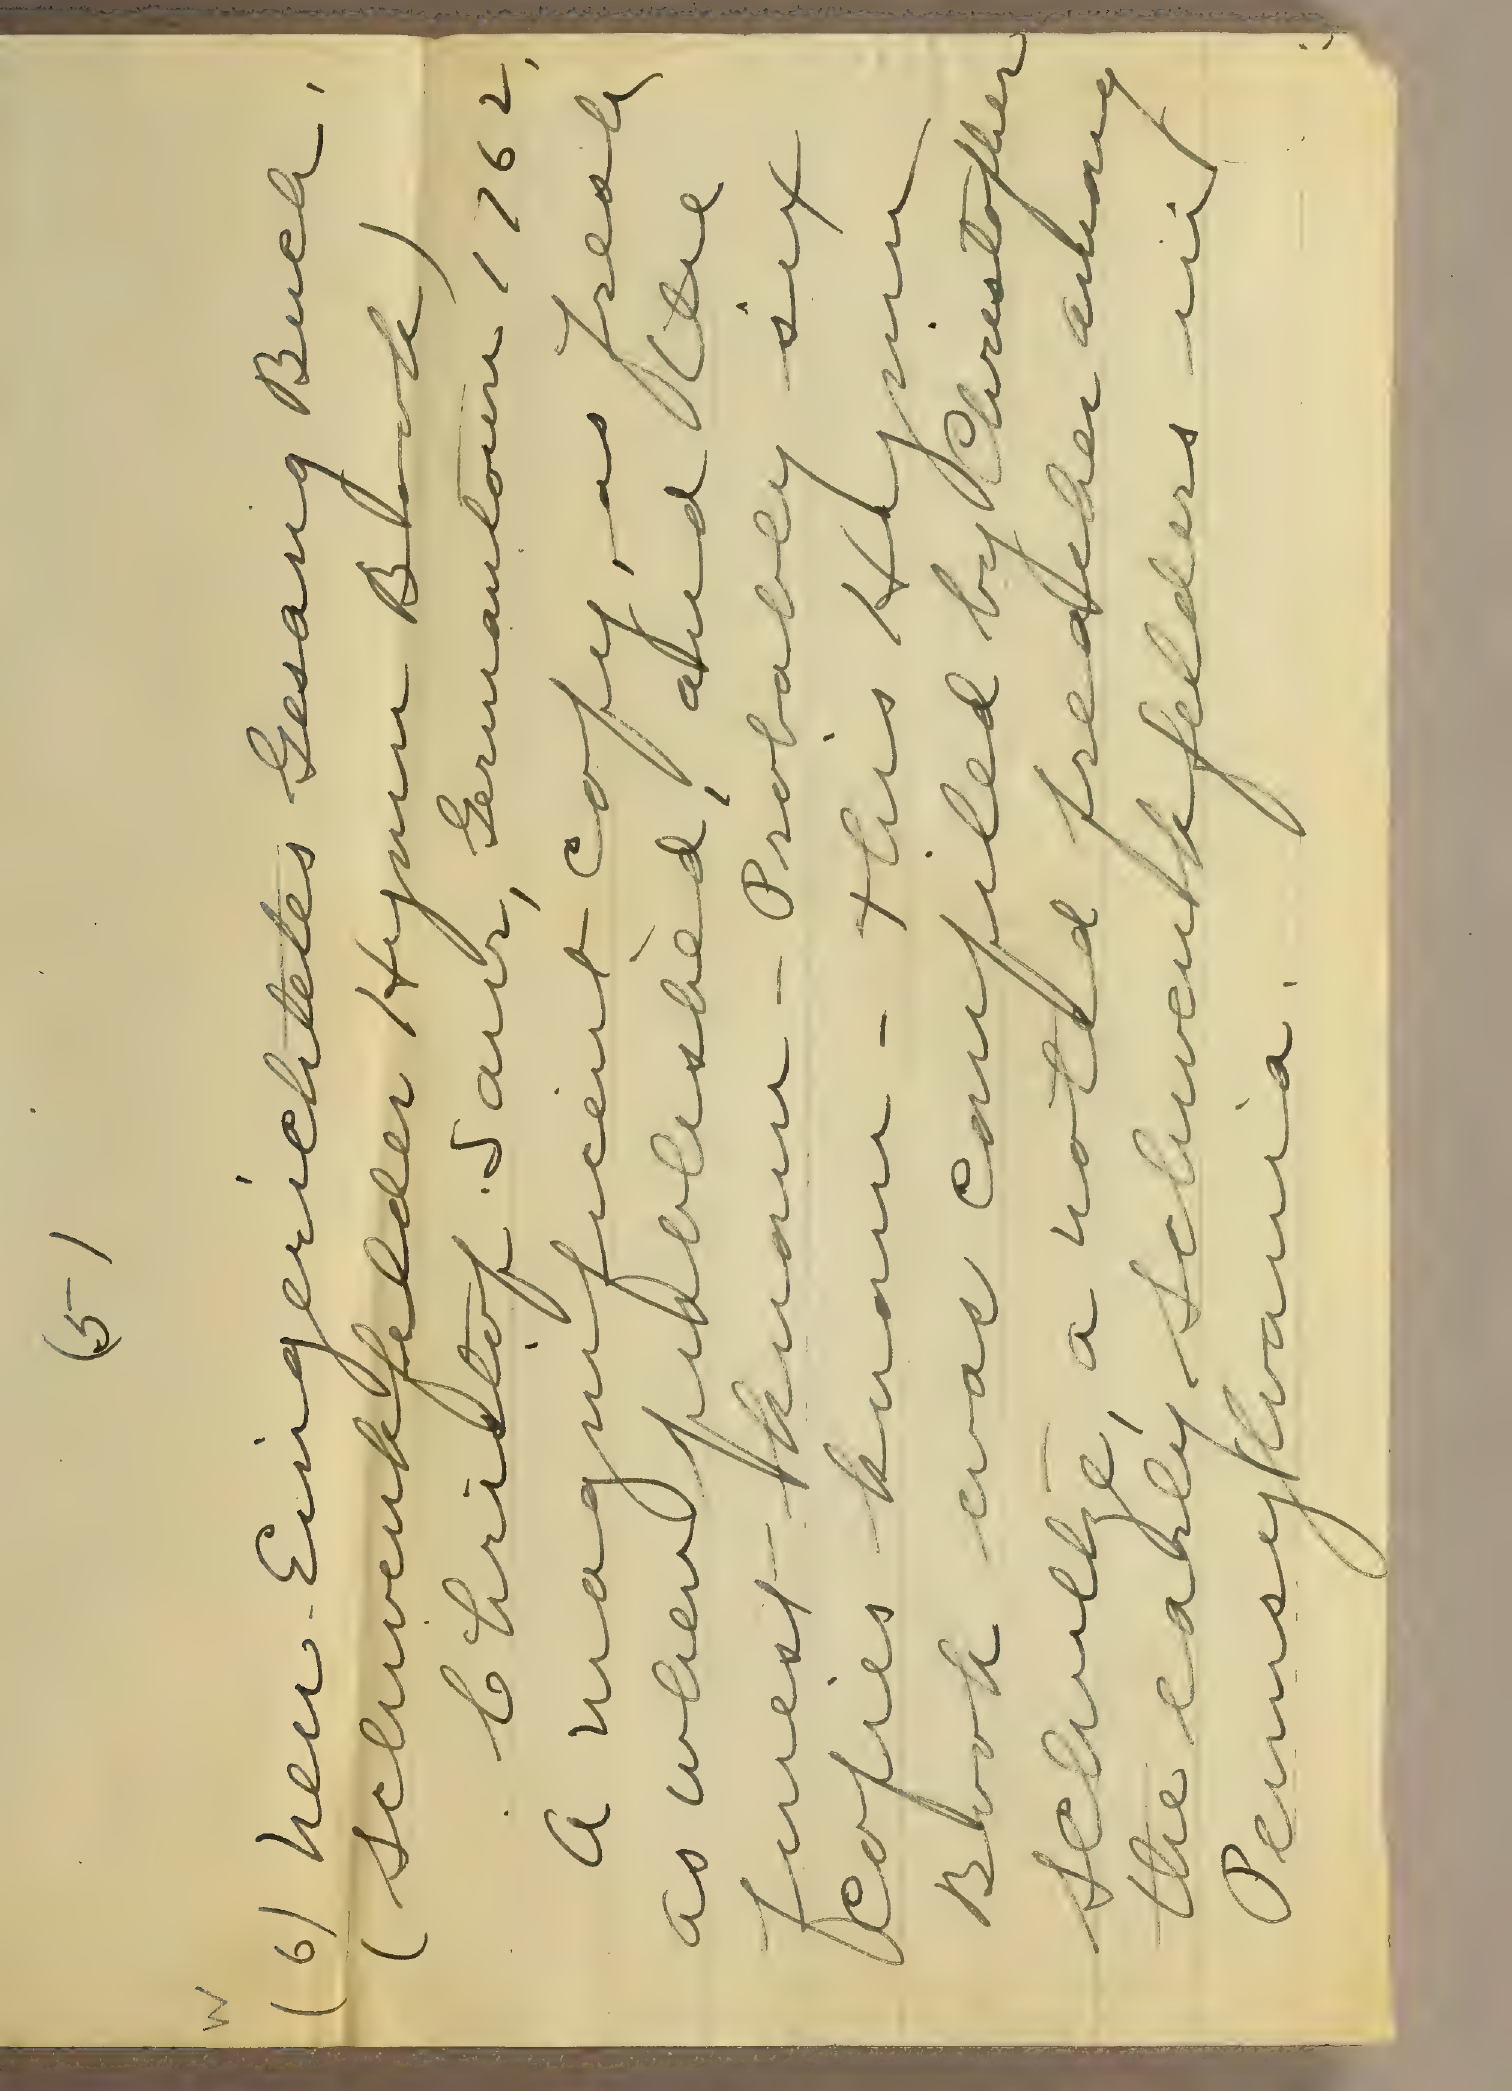 (5)
W
(6) Neu-Eingerichtetes Gesang Buch.
(Schwenkfelder Hymn Book)
Christof Saur, Germantown 1762.
A magnificent copy, as fresh
as when published, and the
finest known - Probably six
copies known - This Hymn
Book was compiled by Christopher
Schultze, a noted preacher among
the early Schwenkfelders in
Pennsylvania.